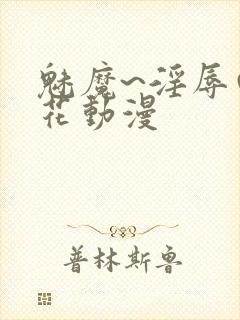 魅魔~淫辱(
花動漫
普林斯魯